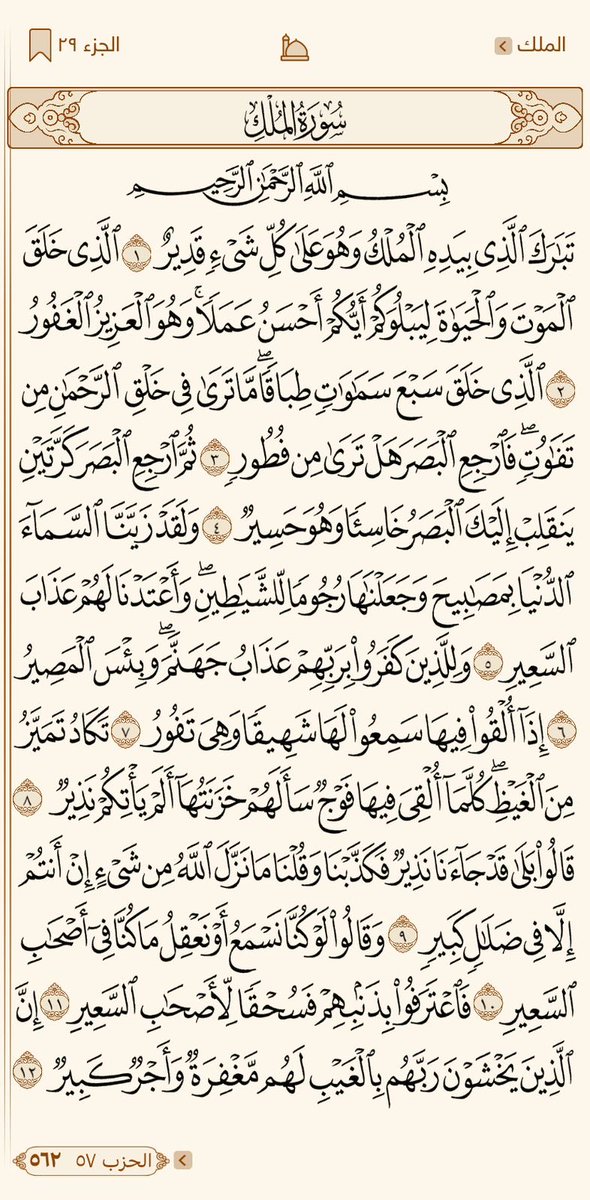 الملك
الجزء ٢٩
سُورَةُ المُلْكِ
بِسْمِ اللَّهِ الرَّحْمَٰنِ الرَّحِيمِ
تَبَٰرَكَ ٱلَّذِى بِيَدِهِ ٱلْمُلْكُ وَهُوَ عَلَىٰ كُلِّ شَىْءٍ قَدِيرٌ ١ ٱلَّذِى خَلَقَ
ٱلْمَوْتَ وَٱلْحَيَوٰةَ لِيَبْلُوَكُمْ أَيُّكُمْ أَحْسَنُ عَمَلًا ۚ وَهُوَ ٱلْعَزِيزُ ٱلْغَفُورُ
٢ ٱلَّذِى خَلَقَ سَبْعَ سَمَٰوَٰتٍ طِبَاقًا ۖ مَّا تَرَىٰ فِى خَلْقِ ٱلرَّحْمَٰنِ مِن
تَفَٰوُتٍ ۖ فَٱرْجِعِ ٱلْبَصَرَ هَلْ تَرَىٰ مِن فُطُورٍ ٣ ثُمَّ ٱرْجِعِ ٱلْبَصَرَ كَرَّتَيْنِ
يَنقَلِبْ إِلَيْكَ ٱلْبَصَرُ خَاسِئًا وَهُوَ حَسِيرٌ ٤ وَلَقَدْ زَيَّنَّا ٱلسَّمَآءَ
ٱلدُّنْيَا بِمَصَٰبِيحَ وَجَعَلْنَٰهَا رُجُومًا لِّلشَّيَٰطِينِ ۖ وَأَعْتَدْنَا لَهُمْ عَذَابَ
ٱلسَّعِيرِ ٥ وَلِلَّذِينَ كَفَرُوا۟ بِرَبِّهِمْ عَذَابُ جَهَنَّمَ ۖ وَبِئْسَ ٱلْمَصِيرُ
٦ إِذَآ أُلْقُوا۟ فِيهَا سَمِعُوا۟ لَهَا شَهِيقًا وَهِىَ تَفُورُ ٧ تَكَادُ تَمَيَّزُ
مِنَ ٱلْغَيْظِ ۖ كُلَّمَآ أُلْقِىَ فِيهَا فَوْجٌ سَأَلَهُمْ خَزَنَتُهَآ أَلَمْ يَأْتِكُمْ نَذِيرٌ ٨
قَالُوا۟ بَلَىٰ قَدْ جَآءَنَا نَذِيرٌ فَكَذَّبْنَا وَقُلْنَا مَا نَزَّلَ ٱللَّهُ مِن شَىْءٍ إِنْ أَنتُمْ
إِلَّا فِى ضَلَٰلٍ كَبِيرٍ ٩ وَقَالُوا۟ لَوْ كُنَّا نَسْمَعُ أَوْ نَعْقِلُ مَا كُنَّا فِىٓ أَصْحَٰبِ
ٱلسَّعِيرِ ١٠ فَٱعْتَرَفُوا۟ بِذَنۢبِهِمْ فَسُحْقًا لِّأَصْحَٰبِ ٱلسَّعِيرِ ١١ إِنَّ
ٱلَّذِينَ يَخْشَوْنَ رَبَّهُم بِٱلْغَيْبِ لَهُم مَّغْفِرَةٌ وَأَجْرٌ كَبِيرٌ ١٢
الحزب ٥٧ ٥٦٢